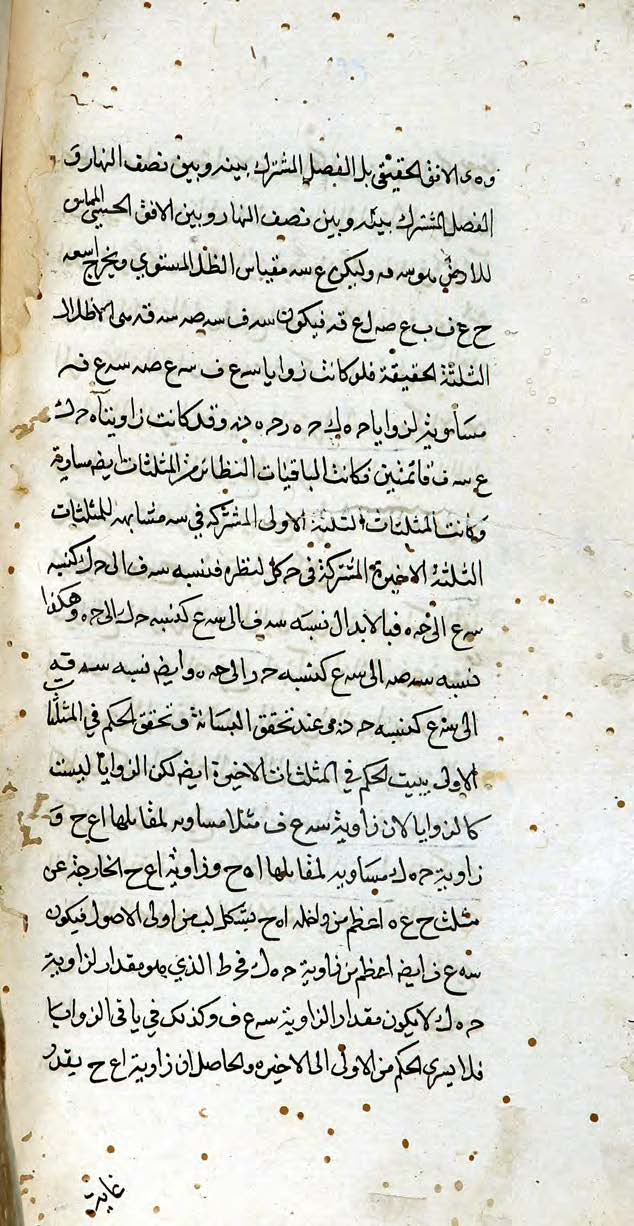 وه ى الافق الحقيقى بل الفصل المشترك بينه وبين نصف النهار و
الفصل المشترك بينه وبين نصف النهار وبين الافق الحسى المماس
للارض هو سه مه وليكن ع سه مقياس الظل المستوي ويخرج اسعه
ح ع ف ب ع صه ل ع قه فيكون سه ف سه صه سه قه هى الاظلال
الثلثة الحقيقة فلو كانت زوايا سه ع ف سه ع صه سه ع قه
مساوية لزوايا ح ه ك ح ه ر ح ه د وقد كانت زاويتا ه ح ك
ع سه ف قائمتين فكانت الباقيات النظائر من المثلثات ايضا مساوية
وكانت المثلثات الثلثة الاولى المشتركة فى سه مشابهه للمثلثات
الثلثة الاخيرة المشتركة فى ح كل لنظره فنسبه سه ف الى ح ك كنسبه
سه ع الى ح ه فبالابدال نسبه سه ف الى سه ع كنسبه ح ك الى ح ه وهكذا
نسبه سه صه الى سه ع كنسبه ح ر الى ح ه وايضا نسبه سه قه
الى سه ع كنسبه ح د عند تحقق وتحقق الحكم في المثلثات
الاولى يثبت الحكم فى المثلثات الاخيرة ايضا لكن الزوايا ليست
كالزوايا لان زاوية سه ع ف مثلا مساويه لمقابلها ا ع ح و
زاوية ح ه ك مساويه لمقابلها ا ه ح وزاوية ا ع ح الخارجة عن
مثلث ح ع ه اعظم من داخله ا ه ح بشكل من اولى الاصول فيكون
سه ع ف ايضا اعظم من زاوية ح ه ك فخط الذي هو مقدار لزاوية
ح ه ك لا يكون مقدار الزاوية سه ع ف وكذلك فى باقى الزوايا
فلا يسرى الحكم من الاولى الى الاخيره والحاصل ان زاوية ا ع ح بقدر
غاية